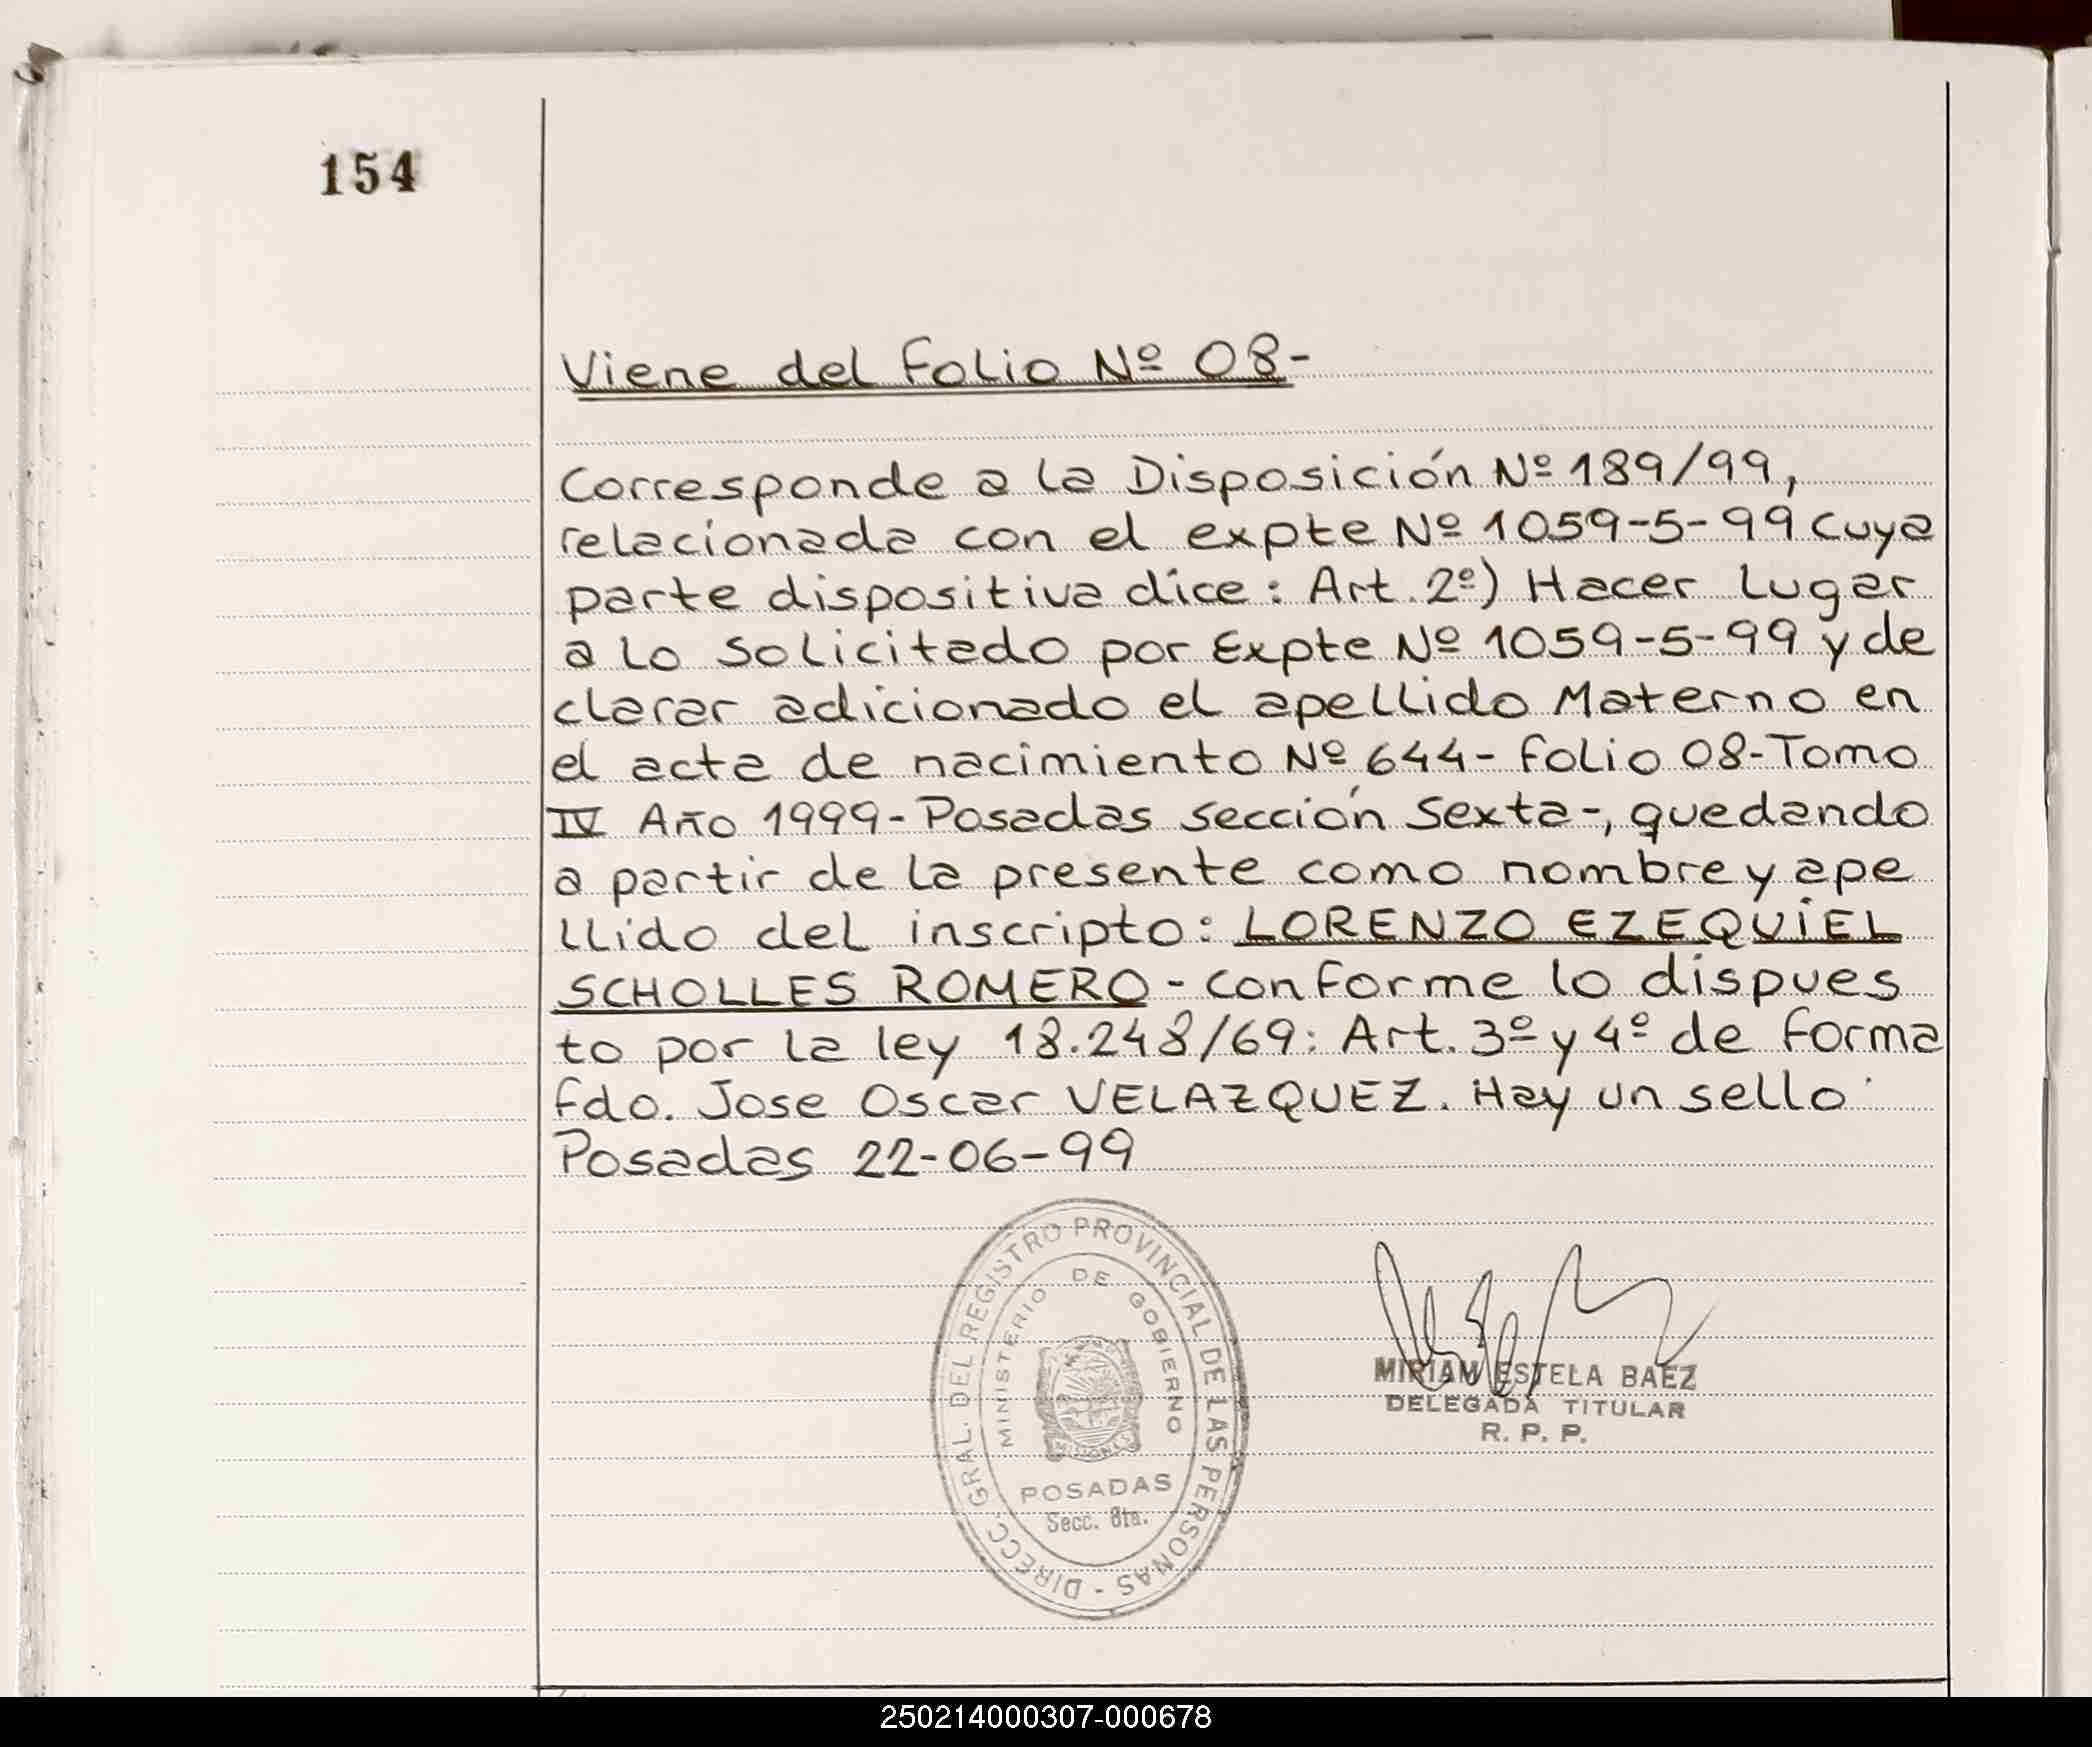 154
Viene del Folio Nº 08-
Corresponde a la Disposición Nº 189/99,
relacionada con el expte Nº 1059-5-99 cuya
parte dispositiva dice: Art. 2º) Hacer lugar
a lo solicitado por Expte Nº 1059-5-99 y de
clarar adicionado el apellido Materno en
el acta de nacimiento Nº 644- folio 08-Tomo
IV Año 1999- Posadas sección Sexta-, quedando
a partir de la presente como nombre y ape
llido del inscripto: LORENZO EZEQUIEL
SCHOLLES ROMERO - conforme lo dispues
to por la ley 18.248/69: Art. 3º y 4º de forma
fdo. Jose Oscar VELAZQUEZ. Hay un sello
Posadas 22-06-99
DIRECC. GRAL. DEL REGISTRO PROVINCIAL DE LAS PERSONAS -
MINISTERIO DE GOBIERNO
MISIONES
POSADAS
Secc. 6ta.
MIRIAM ESTELA BAEZ
DELEGADA TITULAR
R. P. P.
250214000307-000678